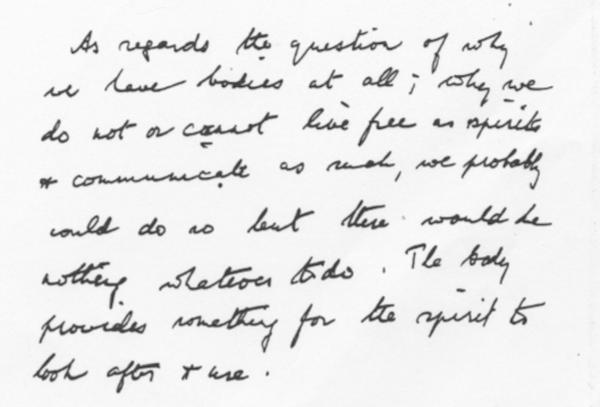 As regards the question of why
we have bodies at all; why we
do not or cannot live free as spirits
& communicate as such, we probably
could do so but there would be
nothing whatever to do. The body
provides something for the spirit to
look after & use.